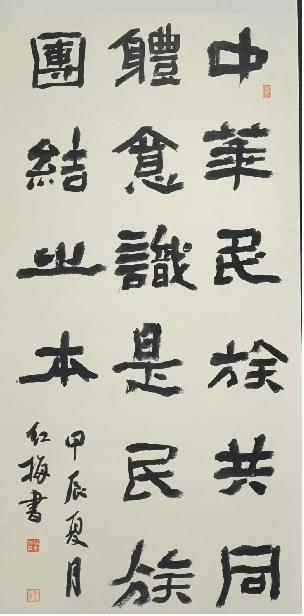 中華民族共同
體意識是民族
團結之本
甲辰夏月
红梅書